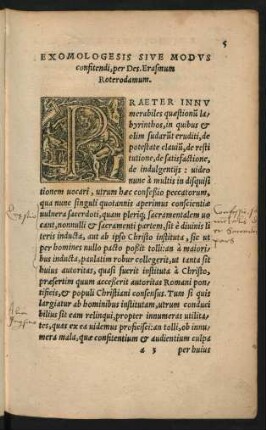 5
EXOMOLOGESIS SIVE MODVS
confitendi, per Des. Erasmum
Roterodamum.
PRAETER INNV
merabiles quæstionũ la,
byrinthos, in quibus &
olim sudarũt eruditi, de
potestate clauiũ, de resti
tutione, de satisfactione,
de indulgentijs: uideo
nunc à multis in disquisi
tionem uocari, utrum hæc confeßio peccatorum,
qua nunc singuli quotannis aperimus conscientiæ
uulnera sacerdoti, quam pleriq; sacramentalem uo
cant, nonnulli & sacramenti partem, sit è diuinis li
teris inducta, aut ab ipso Christo instituta, sic ut
per homines nullo pacto poßit tolli: an à maiori,
bus inducta, paulatim robur collegerit, ut tanta sit
huius autoritas, quasi fuerit instituta à Christo,
præsertim quum acceßerit autoritas Romani pon,
tificis, & populi Christiani consensus. Tum si quis
largiatur ab hominibus institutam, utrum conduci
bilius sit eam relinqui, propter innumeras utilita,
tes, quas ex ea uidemus proficisci: an tolli, ob innu,
mera mala, quæ confitentium & audientium culpa
a 3 per huius